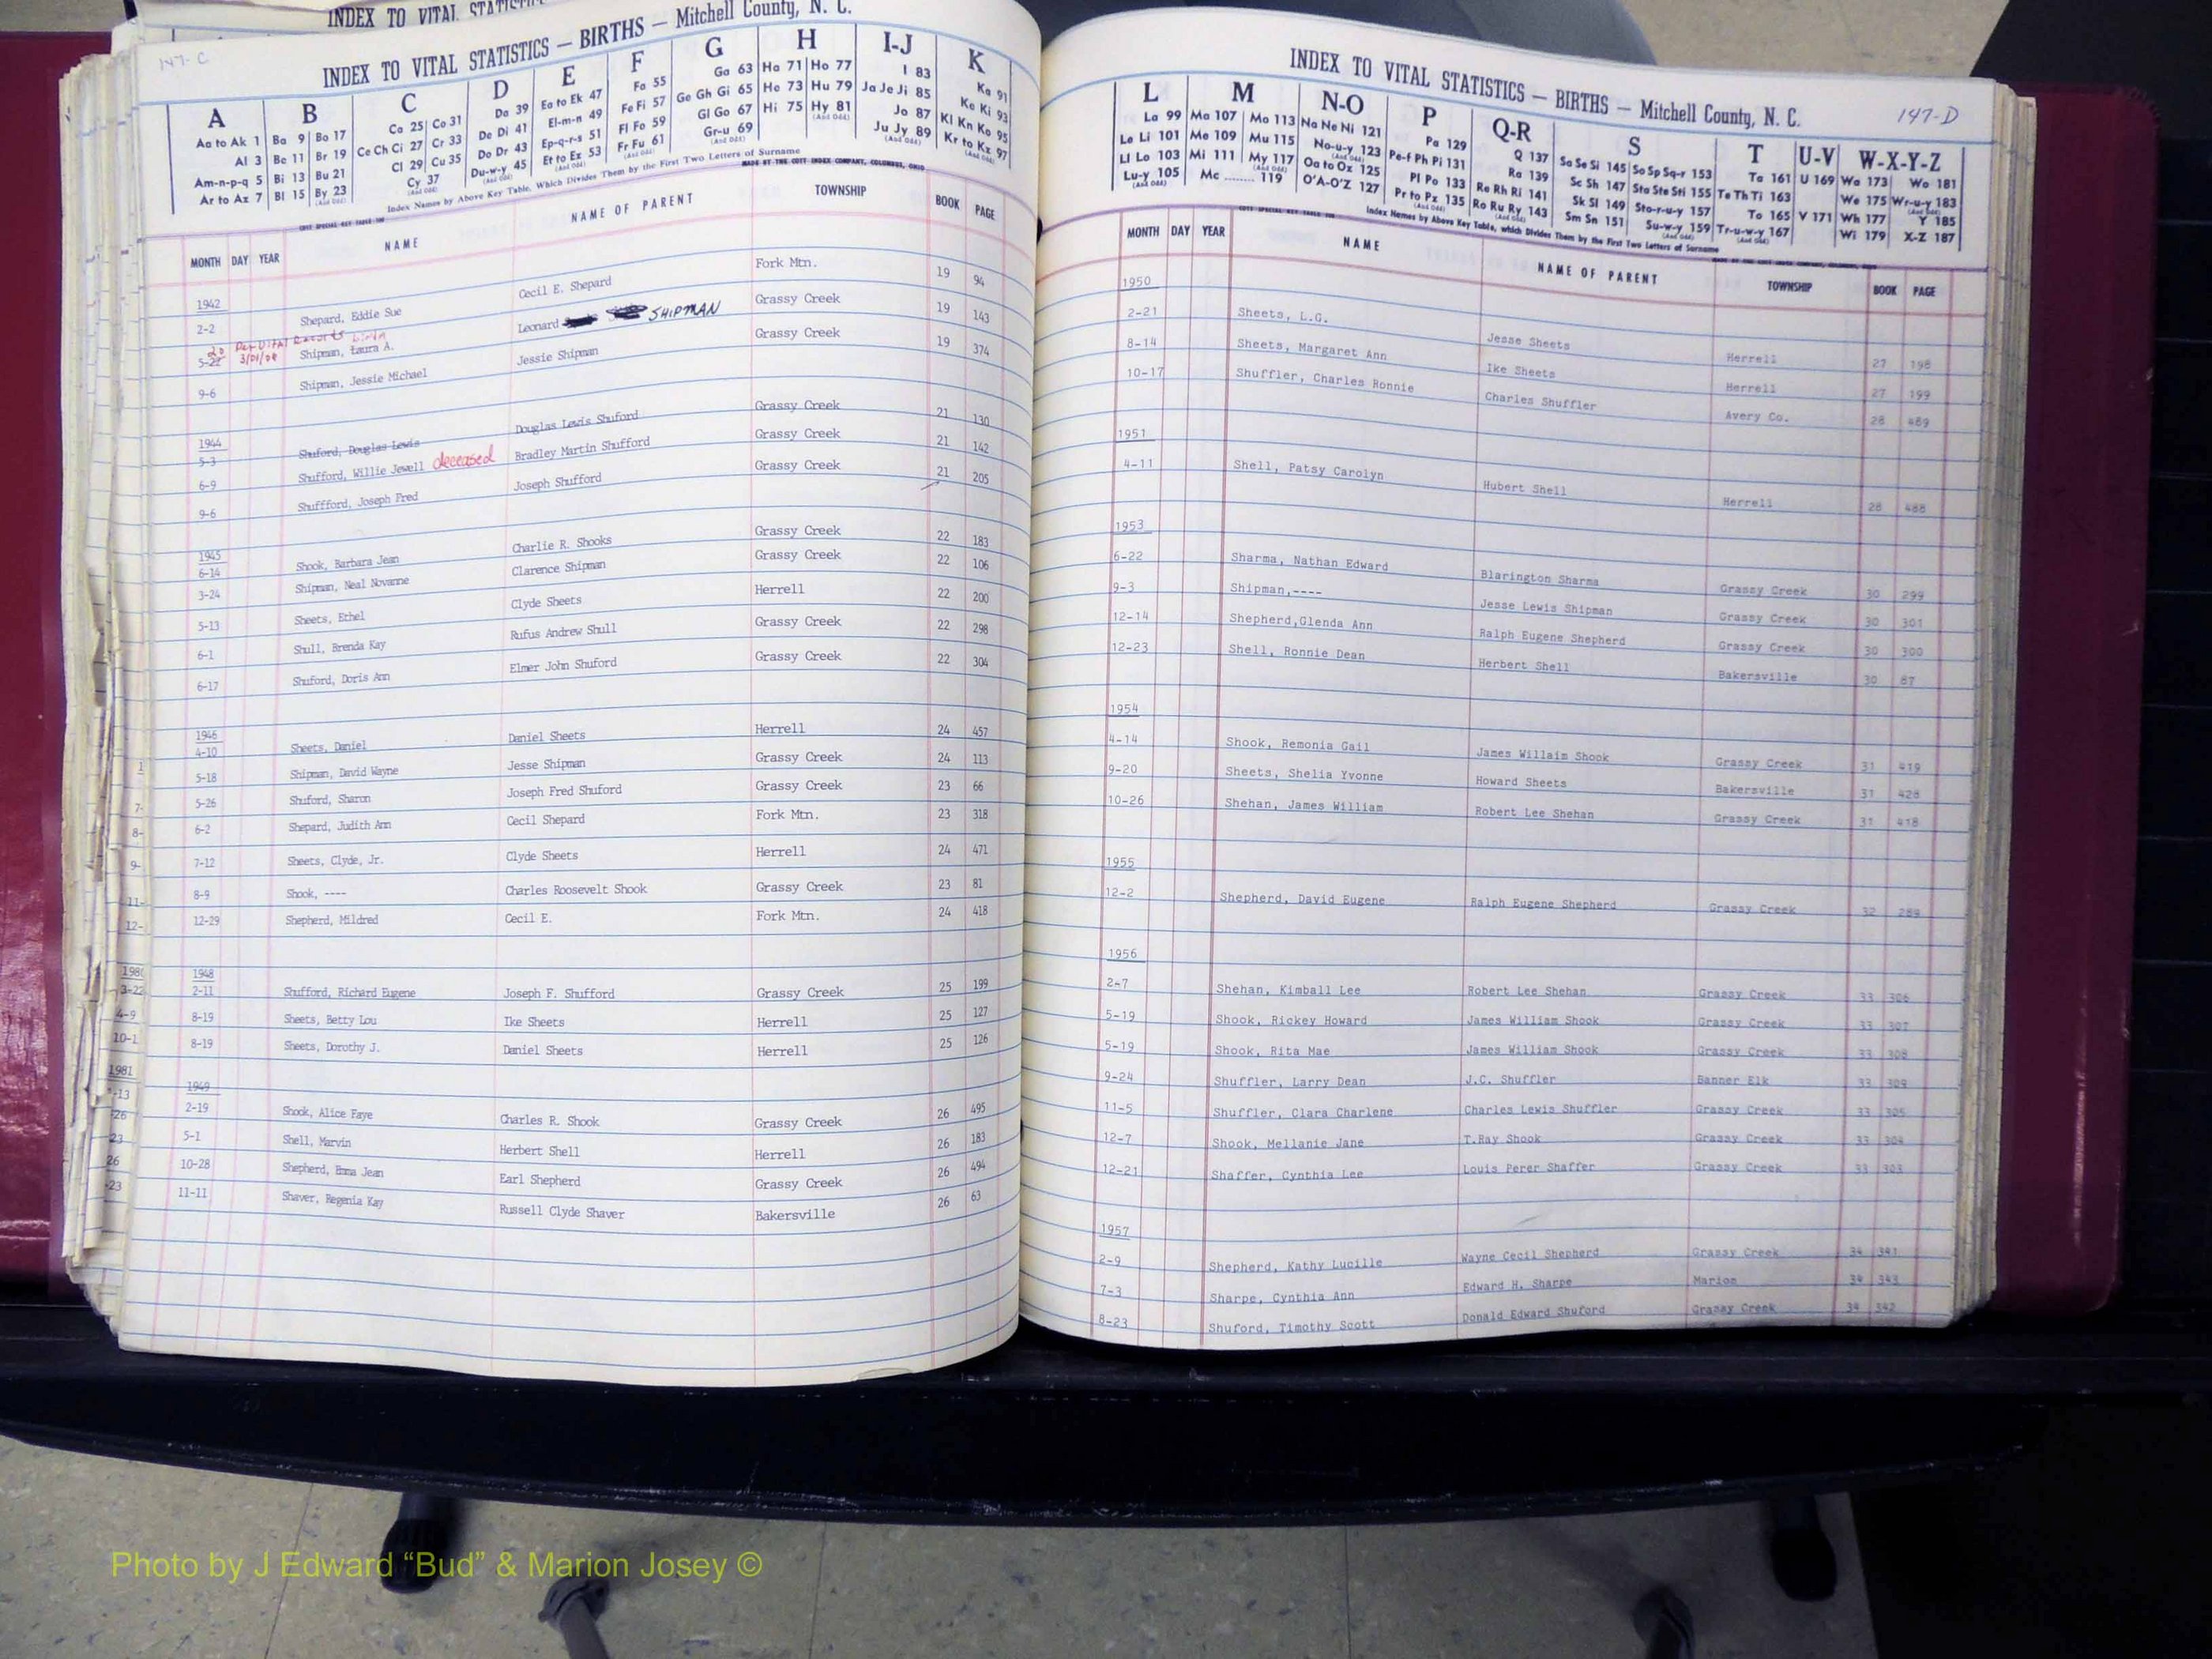 INDEX TO VITAL STATISTICS
147-C
INDEX TO VITAL STATISTICS — BIRTHS — Mitchell County, N. C.
A B C D E F G H I-J K
Aa to Ak 1 Ba 9 Bo 17 Ca 25 Co 31 Da 39 Ea to Ek 47 Fa 55 Ga 63 Ha 71 Ho 77 I 83 Ka 91
Al 3 Be 11 Br 19 Ce Ch Ci 27 Cr 33 De Di 41 El-m-n 49 Fe Fi 57 Ge Gh Gi 65 He 73 Hu 79 Ja Je Ji 85 Ke Ki 93
Am-n-p-q 5 Bi 13 Bu 21 Cl 29 Cu 35 Do Dr 43 Ep-q-r-s 51 Fl Fo 59 Gl Go 67 Hi 75 Hy 81 Jo 87 Kl Kn Ko 95
Ar to Az 7 Bl 15 By 23 Cy 37 Du-w-y 45 Et to Ex 53 Fr Fu 61 Gr-u 69 Ju Jy 89 Kr to Kz 97
Index Names by Above Key Table, Which Divides Them by the First Two Letters of Surname
MADE BY THE COTT INDEX COMPANY, COLUMBUS, OHIO
MONTH DAY YEAR NAME NAME OF PARENT TOWNSHIP BOOK PAGE
1942
2-2 Shepard, Eddie Sue Cecil E. Shepard Fork Mtn. 19 94
20 Per Vital Records LINA
3/01/04
5-22 Shipman, Laura A. Leonard SHIPMAN Grassy Creek 19 143
9-6 Shipman, Jessie Michael Jessie Shipman Grassy Creek 19 374
1944
5-3 Shuford, Douglas Lewis Douglas Lewis Shuford Grassy Creek 21 130
6-9 Shufford, Willie Jewell deceased Bradley Martin Shufford Grassy Creek 21 142
9-6 Shuffford, Joseph Fred Joseph Shufford Grassy Creek 21 205
1945
6-14 Shook, Barbara Jean Charlie R. Shooks Grassy Creek 22 183
3-24 Shipman, Neal Novanne Clarence Shipman Grassy Creek 22 106
5-13 Sheets, Ethel Clyde Sheets Herrell 22 200
6-1 Shull, Brenda Kay Rufus Andrew Shull Grassy Creek 22 298
6-17 Shuford, Doris Ann Elmer John Shuford Grassy Creek 22 304
1946
4-10 Sheets, Daniel Daniel Sheets Herrell 24 457
5-18 Shipman, David Wayne Jesse Shipman Grassy Creek 24 113
5-26 Shuford, Sharon Joseph Fred Shuford Grassy Creek 23 66
6-2 Shepard, Judith Ann Cecil Shepard Fork Mtn. 23 318
7-12 Sheets, Clyde, Jr. Clyde Sheets Herrell 24 471
8-9 Shook, ---- Charles Roosevelt Shook Grassy Creek 23 81
12-29 Shepherd, Mildred Cecil E. Fork Mtn. 24 418
1948
2-11 Shufford, Richard Eugene Joseph F. Shufford Grassy Creek 25 199
8-19 Sheets, Betty Lou Ike Sheets Herrell 25 127
8-19 Sheets, Dorothy J. Daniel Sheets Herrell 25 126
1949
2-19 Shook, Alice Faye Charles R. Shook Grassy Creek 26 495
5-1 Shell, Marvin Herbert Shell Herrell 26 183
10-28 Shepherd, Emma Jean Earl Shepherd Grassy Creek 26 494
11-11 Shaver, Regenia Kay Russell Clyde Shaver Bakersville 26 63
1
7-
8-
9-
11-
12-
1980
3-22
4-9
10-1
1981
-13
26
23
26
-23
INDEX TO VITAL STATISTICS — BIRTHS — Mitchell County, N. C.
147-D
L M N-O P Q-R S T U-V W-X-Y-Z
La 99 Ma 107 Mo 113 Na Ne Ni 121 Pa 129 Q 137 Sa Se Si 145 So Sp Sq-r 153 Ta 161 U 169 Wa 173 Wo 181
Le Li 101 Me 109 Mu 115 No-u-y 123 Pe-f Ph Pi 131 Ra 139 Sc Sh 147 Sta Ste Sti 155 Te Th Ti 163 We 175 Wr-u-y 183
Ll Lo 103 Mi 111 My 117 Oa to Oz 125 Pl Po 133 Re Rh Ri 141 Sk Sl 149 Sto-r-u-y 157 To 165 V 171 Wh 177 Y 185
Lu-y 105 Mc 119 O'A-O'Z 127 Pr to Pz 135 Ro Ru Ry 143 Sm Sn 151 Su-w-y 159 Tr-u-w-y 167 Wi 179 X-Z 187
Index Names by Above Key Table, which Divides Them by the First Two Letters of Surname
MONTH DAY YEAR NAME NAME OF PARENT TOWNSHIP BOOK PAGE
1950
2-21 Sheets, L.G. Jesse Sheets Herrell 27 198
8-14 Sheets, Margaret Ann Ike Sheets Herrell 27 199
10-17 Shuffler, Charles Ronnie Charles Shuffler Avery Co. 28 489
1951
4-11 Shell, Patsy Carolyn Hubert Shell Herrell 28 488
1953
6-22 Sharma, Nathan Edward Blarington Sharma Grassy Creek 30 299
9-3 Shipman,---- Jesse Lewis Shipman Grassy Creek 30 301
12-14 Shepherd,Glenda Ann Ralph Eugene Shepherd Grassy Creek 30 300
12-23 Shell, Ronnie Dean Herbert Shell Bakersville 30 87
1954
4-14 Shook, Remonia Gail James Willaim Shook Grassy Creek 31 419
9-20 Sheets, Shelia Yvonne Howard Sheets Bakersville 31 428
10-26 Shehan, James William Robert Lee Shehan Grassy Creek 31 418
1955
12-2 Shepherd, David Eugene Ralph Eugene Shepherd Grassy Creek 32 289
1956
2-7 Shehan, Kimball Lee Robert Lee Shehan Grassy Creek 33 306
5-19 Shook, Rickey Howard James William Shook Grassy Creek 33 307
5-19 Shook, Rita Mae James William Shook Grassy Creek 33 308
9-24 Shuffler, Larry Dean J.C. Shuffler Banner Elk 33 309
11-5 Shuffler, Clara Charlene Charles Lewis Shuffler Grassy Creek 33 305
12-7 Shook, Mellanie Jane T.Ray Shook Grassy Creek 33 304
12-21 Shaffer, Cynthia Lee Louis Perer Shaffer Grassy Creek 33 303
1957
2-9 Shepherd, Kathy Lucille Wayne Cecil Shepherd Grassy Creek 34 341
7-3 Sharpe, Cynthia Ann Edward H. Sharpe Marion 34 343
8-23 Shuford, Timothy Scott Donald Edward Shuford Grassy Creek 34 342
Photo by J Edward “Bud” & Marion Josey ©